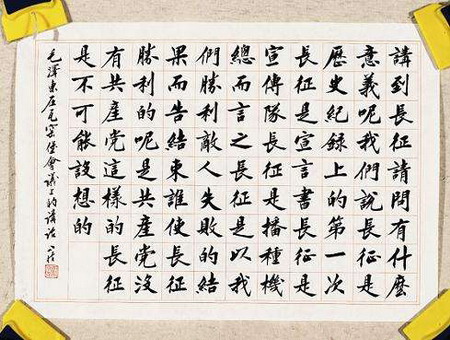 講到長征請問有什麼
意義呢我們說長征是
歷史紀錄上的第一次
長征是宣言書長征是
宣傳隊長征是播種機
總而言之長征是以我
們勝利敵人失敗的結
果而告結束誰使長征
勝利的呢是共產党沒
有共產党這樣的長征
是不可能設想的
毛澤東在瓦窑堡會議上的講話